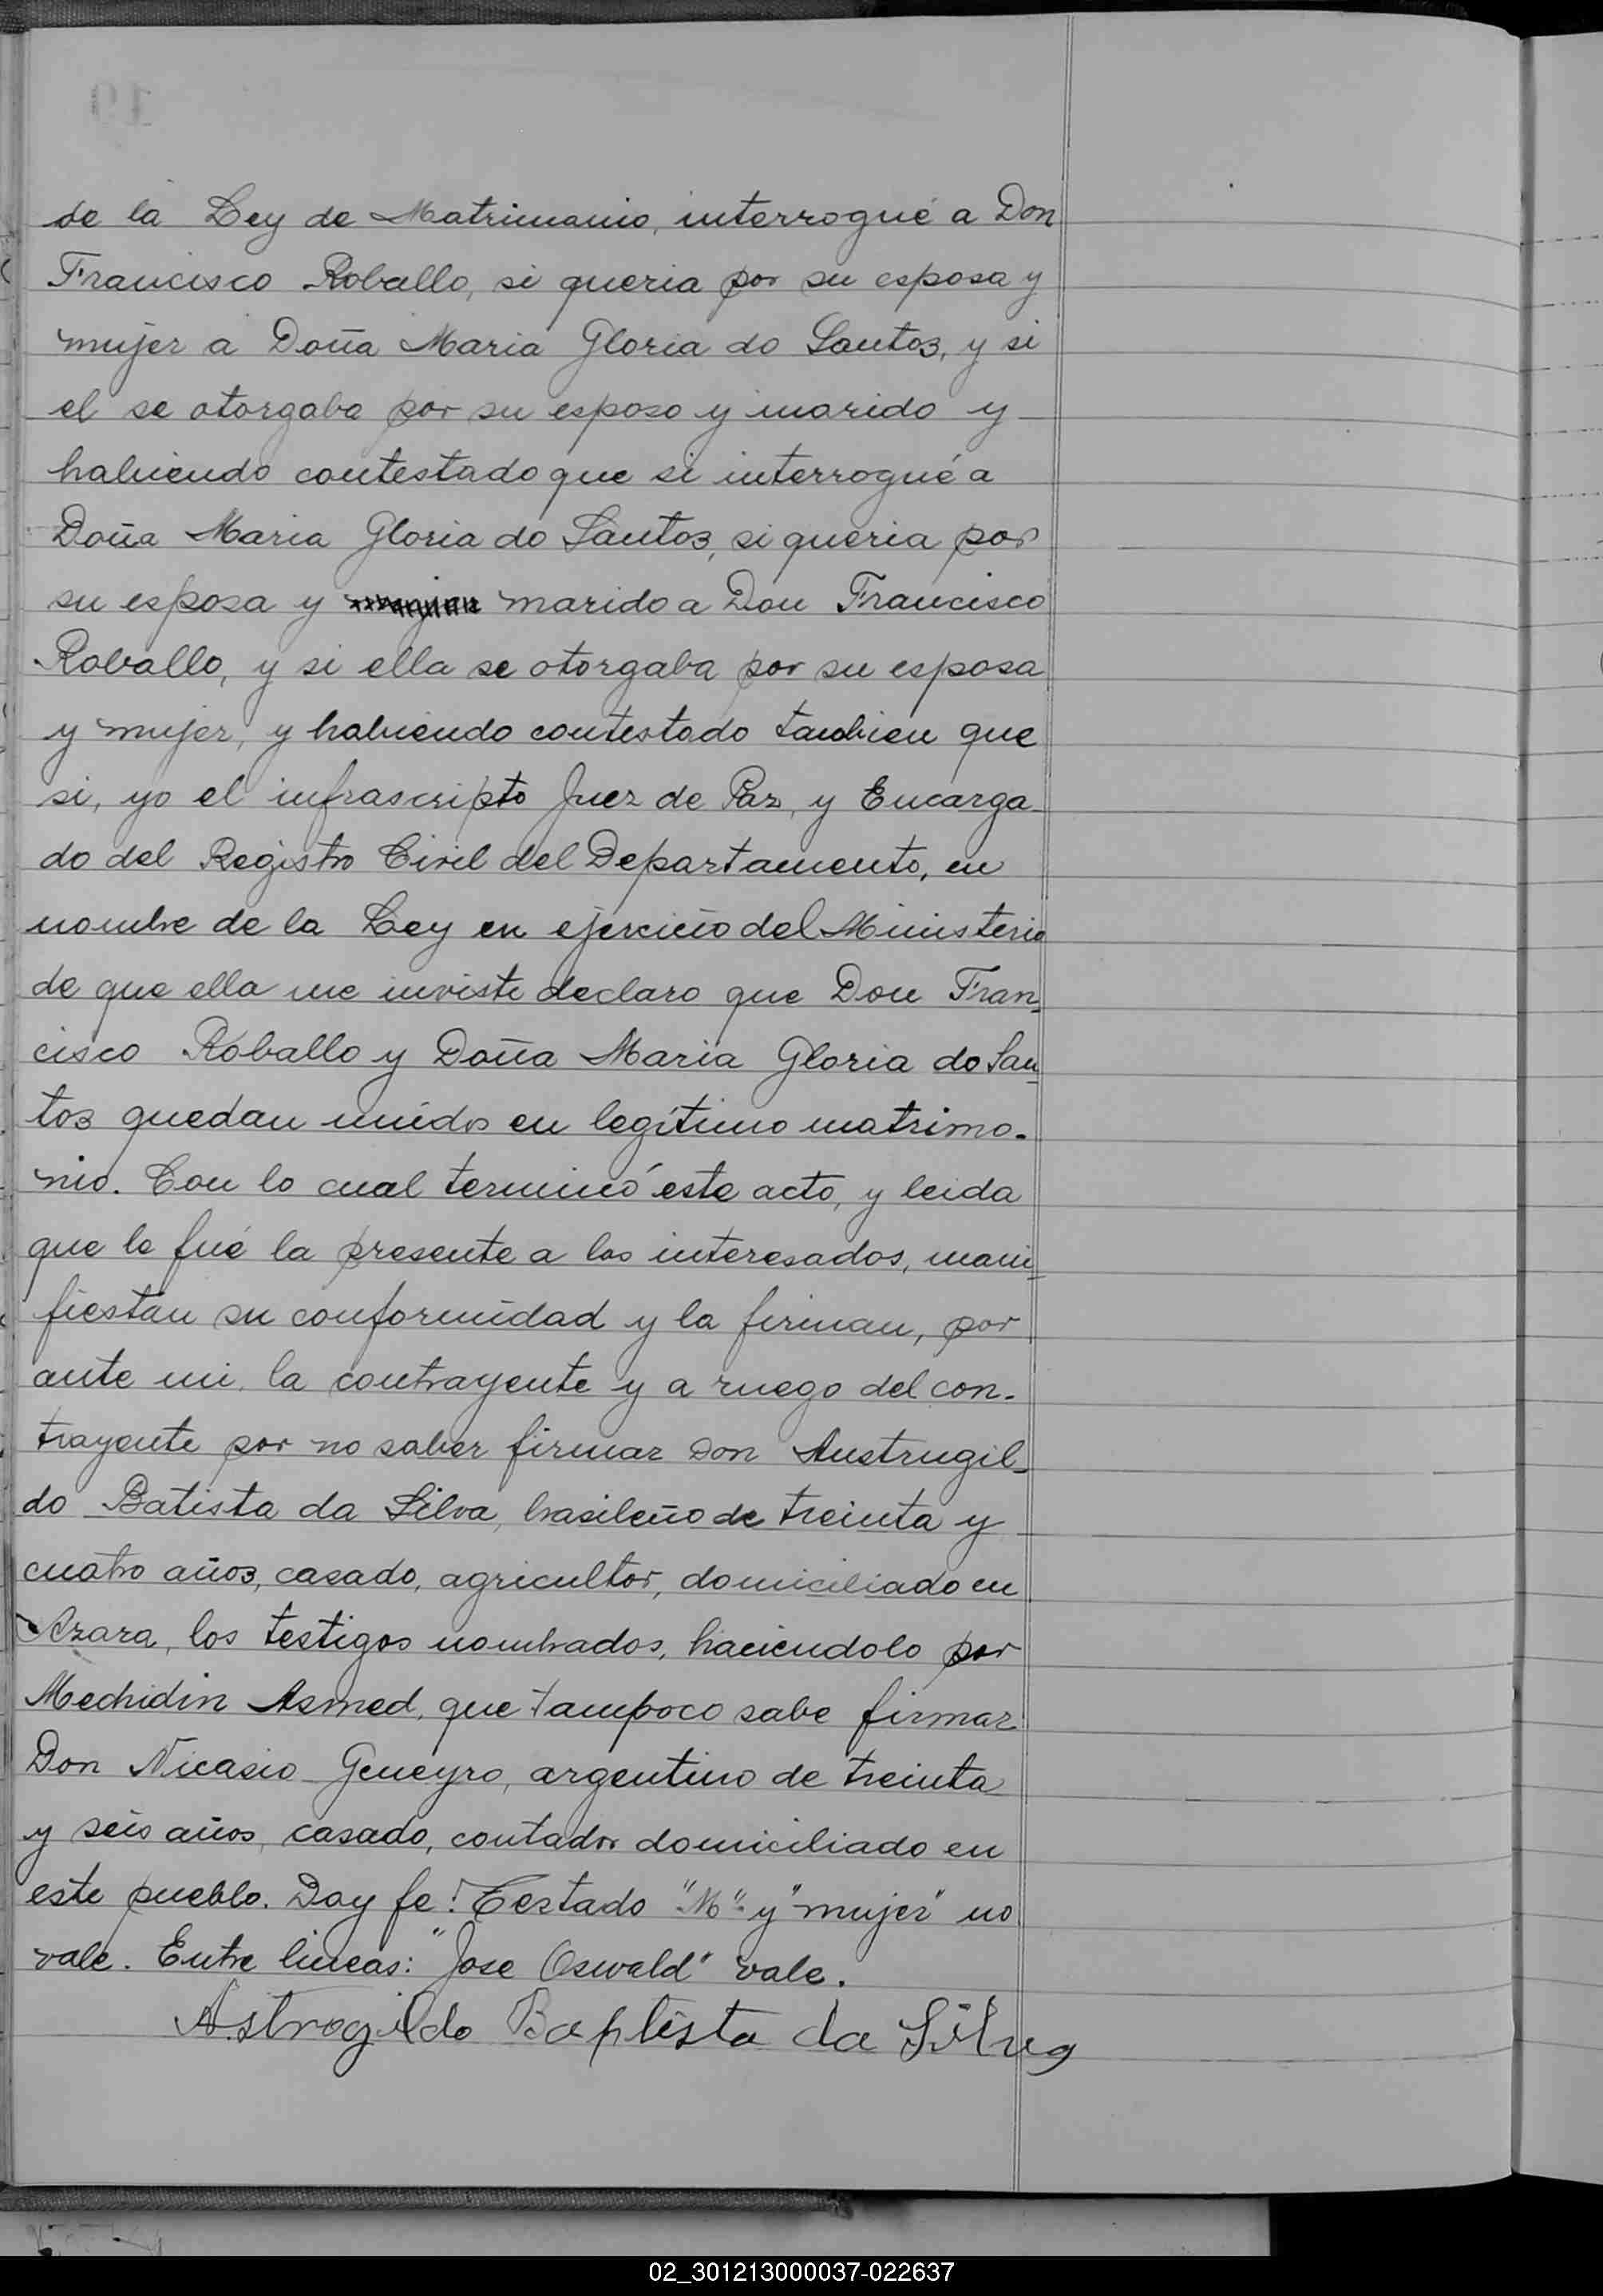 19
de la Ley de Matrimonio, interrogué a Don
Francisco Roballo, si queria por su esposa y
mujer a Doña Maria Gloria do Santos, y si
el se otorgaba por su esposo y marido y
habiendo contestado que si interrogué a
Doña Maria Gloria do Santos, si queria por
su esposa y mujer marido a Don Francisco
Roballo, y si ella se otorgaba por su esposa
y mujer, y habiendo contestado tambien que
si, yo el infrascripto Juez de Paz, y Encarga-
do del Registro Civil del Departamento, en
nombre de la Ley en ejercicio del Ministerio
de que ella me inviste declaro que Don Fran-
cisco Roballo y Doña Maria Gloria do San-
tos quedan unidos en legítimo matrimo-
nio. Con lo cual terminó este acto, y leida
que le fué la presente a los interesados, mani-
fiestan su conformidad y la firman, por
ante mi, la contrayente y a ruego del con-
trayente por no saber firmar Don Austrugil-
do Batista da Silva, brasileño de treinta y
cuatro años, casado, agricultor, domiciliado en
Azara, los testigos nombrados, haciendolo por
Mechidin Asmed, que tampoco sabe firmar
Don Nicasio Geneyro, argentino de treinta
y seis años, casado, contador domiciliado en
este pueblo. Doy fe: Testado "M" y "mujer" no
vale. Entre lineas: "Jose Oswald" vale.
Astrogildo Baptista da Silva
02_301213000037-022637